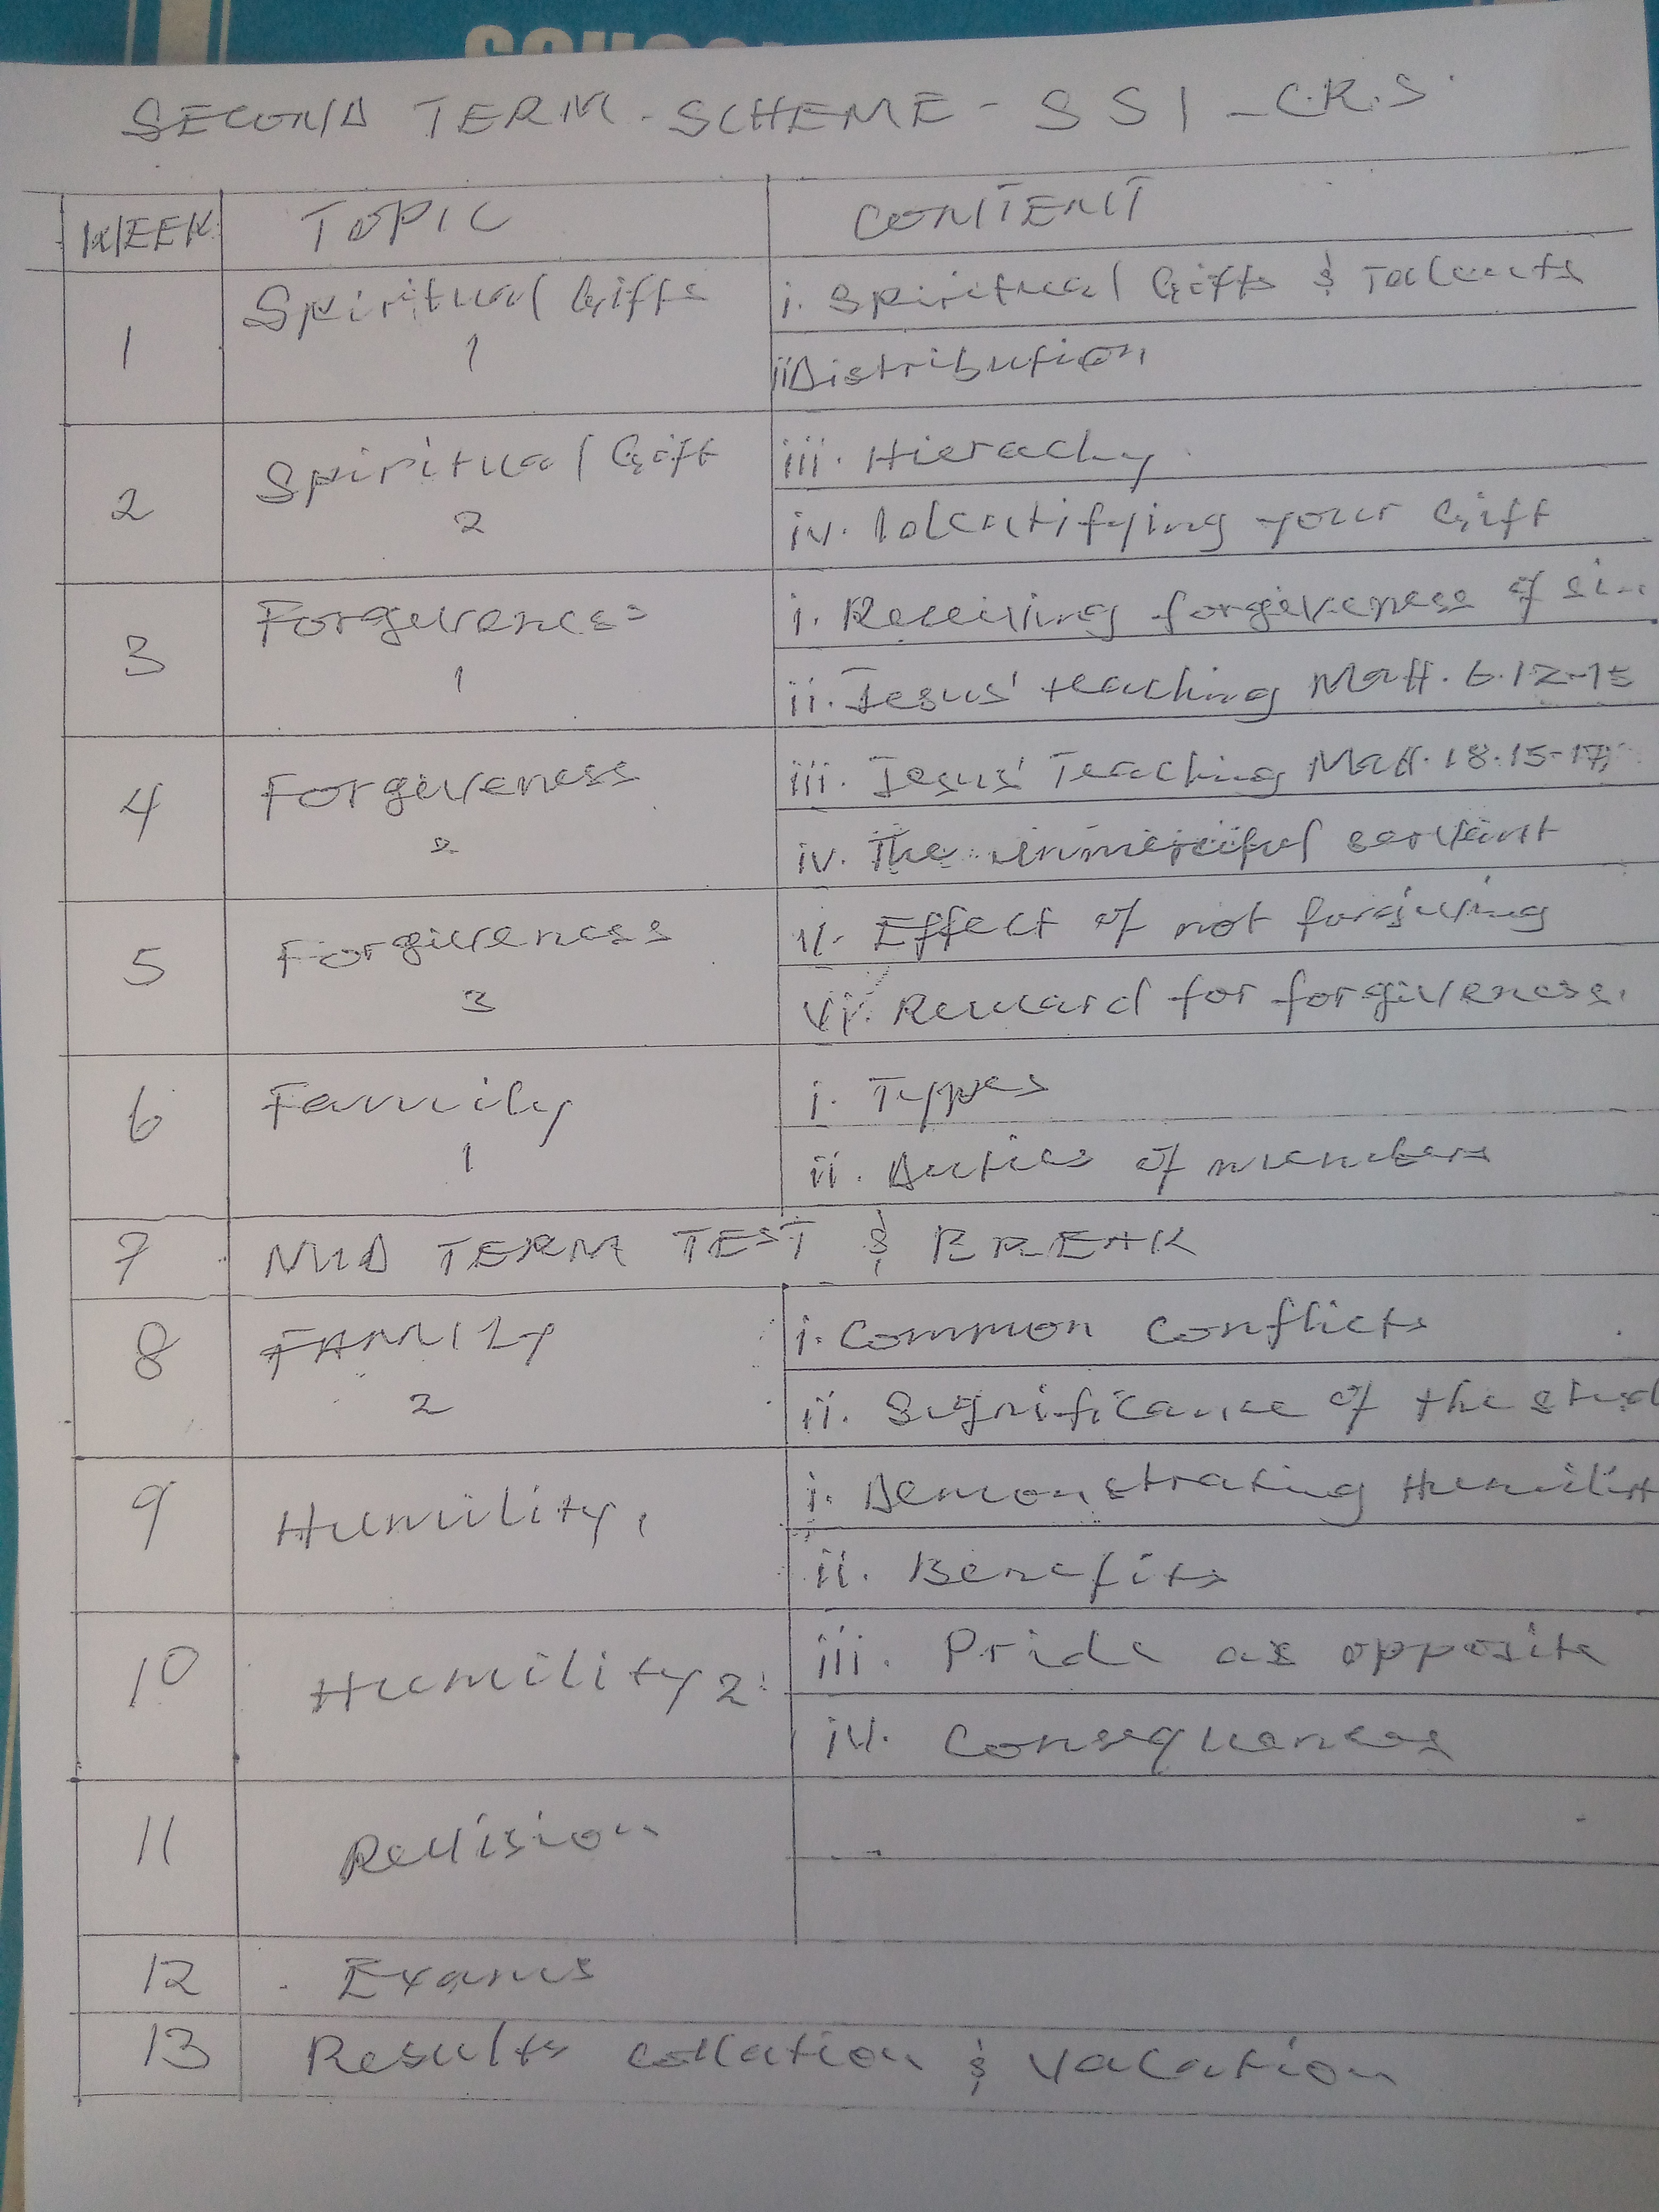 SECOND TERM - SCHEME - SS1 - C.R.S.
WEEK TOPIC CONTENT
1 Spiritual Gifts 1
i. Spiritual Gifts & Talents
ii Distribution
2 Spiritual Gift 2
iii. Hierachy
iv. Identifying your Gift
3 Forgiveness 1
i. Receiving forgiveness of
ii. Jesus' teaching Matt. 6.12-15
4 Forgiveness 2
iii. Jesus' Teaching Matt. 18.15-17
iv. The unmerciful servant
5 Forgiveness 3
v. Effect of not forgiving
vi. Reward for forgiveness.
6 Family 1
i. Types
ii. Duties of members
7 MID TERM TEST & BREAK
8 FAMILY 2
i. Common conflicts
ii. Significance of the
9 Humility 1
i. Demonstrating Humility
ii. Benefits
10 Humility 2
iii. Pride as opposite
iv. Consequences
11 Revision
12 Exams
13 Results collation & vacation